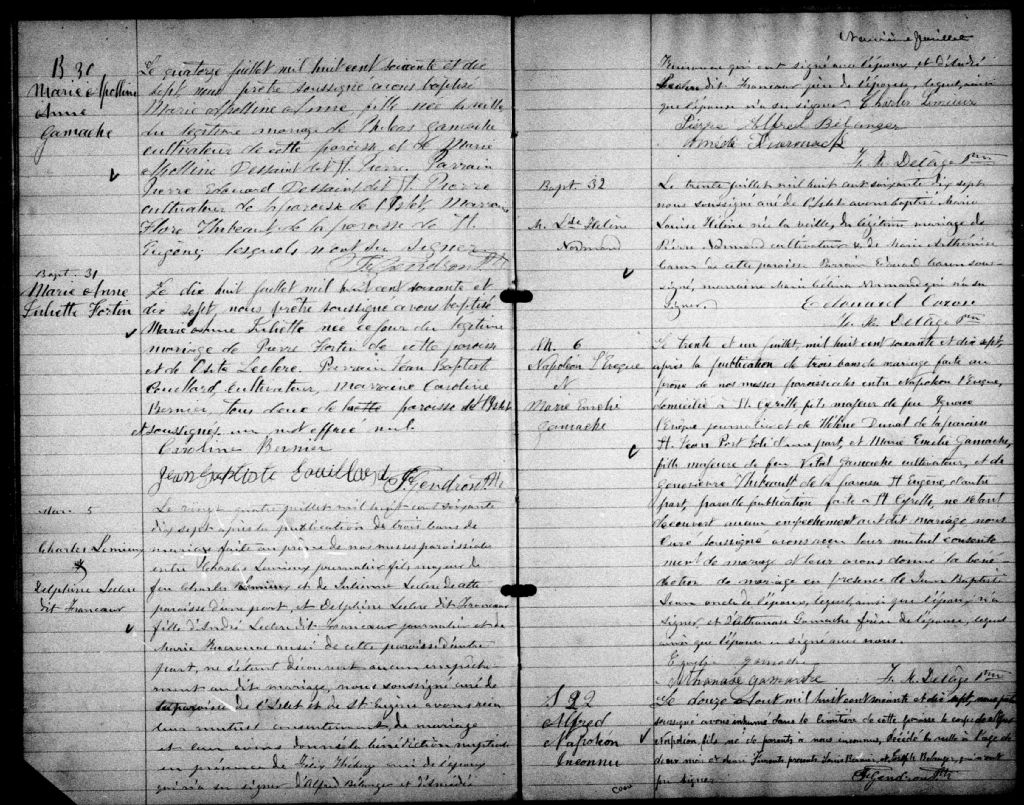 B 30
Marie Apolline
Anne
Gamache
Le quatorze juillet mil huit cent soixante et dix
sept nous prêtre soussigné avons baptisé
Marie Apolline Anne fille née la veille
du légitime mariage de Phileas Gamache
cultivateur de cette paroisse et de Marie
Apolline Dessaint dit St. Pierre Parrain
Pierre Edouard Dessaint dit St. Pierre
cultivateur de la paroisse de l'Islet Marraine
Flore Thibeaut de la paroisse de St
Eugène, lesquels n'ont su signer
F. Gendron Ptre
Bapt. 31
Marie Anne
Juliette Fortin
Le dix huit juillet mil huit cent soixante et
dix sept, nous prêtre soussigné avons baptisé
Marie Anne Juliette née ce jour du légitime
mariage de Pierre Fortin de cette paroisse
et de Leclerc Parrain Jean Baptiste
Couillard, cultivateur, Marraine Caroline
Bernier, tous deux de cette paroisse
et soussignés un mot effacé nul.
Caroline Bernier
Jean Baptiste Couillard F. Gendron Ptre
Mar. 5
Charles Lemieux
&
Delphine Leclerc
dit Francoeur
Le vingt quatre juillet mil huit cent soixante
dix sept après la publication de trois bans de
mariage faite au prône de nos messes paroissiales
entre Charles Lemieux journalier fils majeur de
feu Charles Lemieux et de Julienne Leclerc de cette
paroisse d'une part, et Delphine Leclerc dit Francoeur
fille d'André Leclerc dit Francoeur journalier et de
Marie aussi de cette paroisse d'autre
part, ne s'étant découvert aucun empêche-
ment au dit mariage, nous soussigné curé de
la paroisse de l'Islet et de St Eugène avons reçu
leur mutuel consentement de mariage
et leur avons donné la bénédiction nuptiale
en présence de ami de l'époux
qui n'a su signer d'Alfred Bélanger et d'Amédée
Neuvième feuillet
qui ont signé avec l'époux, et d'André
Leclerc dit Francoeur père de l'épouse, lequel, ainsi
que l'épouse n'a su signer. Charles Lemieux
Pierre Alfred Bélanger
Amédé
F. M. Delâge Ptre
Bapt. 32
M. Lse Helène
Normand
Le trente juillet mil huit cent soixante dix sept
nous soussigné curé de l'Islet avons baptisé Marie
Louise Helène née la veille, du légitime mariage de
Pierre Normand cultivateur & de Marie
Caron de cette paroisse Parrain Edouard Caron sous-
signé, marraine Marie Normand qui n'a su
signer.
Edouard Caron
F. M. Delâge Ptre
M. 6
Napoléon l'Eveque
N
Marie Emelie
Gamache
Le trente et un juillet, mil huit cent soixante et dix sept,
après la publication de trois bans de mariage faite au
prône de nos messes paroissiales entre Napoléon l'Eveque,
domicilié à St. Cyrille fils majeur de feu Ignace
l'Eveque journalier et de Hélène Duval de la paroisse
St. Jean Port Joli d'une part, et Marie Emelie Gamache,
fille majeure de feu Vital Gamache cultivateur, et de
Genevieve Thibeault de la paroisse St Eugène, d'autre
part, pareille publication faite à St Cyrille, ne s'étant
découvert aucun empêchement au dit mariage nous
Curé soussigné avons reçu leur mutuel consente
ment de mariage et leur avons donné la béné
diction de mariage en présence de Jean Baptiste
Jean oncle de l'époux, lequel, ainsi que l'époux, n'a
signer et d'Athanase Gamache frère de l'épouse, lequel
ainsi que l'épouse a signé avec nous.
Gamache
Athanase Gamache F. M. Delâge Ptre
S 22
Alfred
Napoléon
Inconnu
Le douze Aout mil huit cent soixante et dix sept, nous prêtre
soussigné avons inhumé dans le cimetière de cette paroisse le corps de Alfred
Napoléon, fils né de parents à nous inconnus, décédé la veille à l'age de
deux mois et demi Furent présents Louis Bernier, et Joseph Bélanger, qui n'ont
pu signer.
F. Gendron Ptre